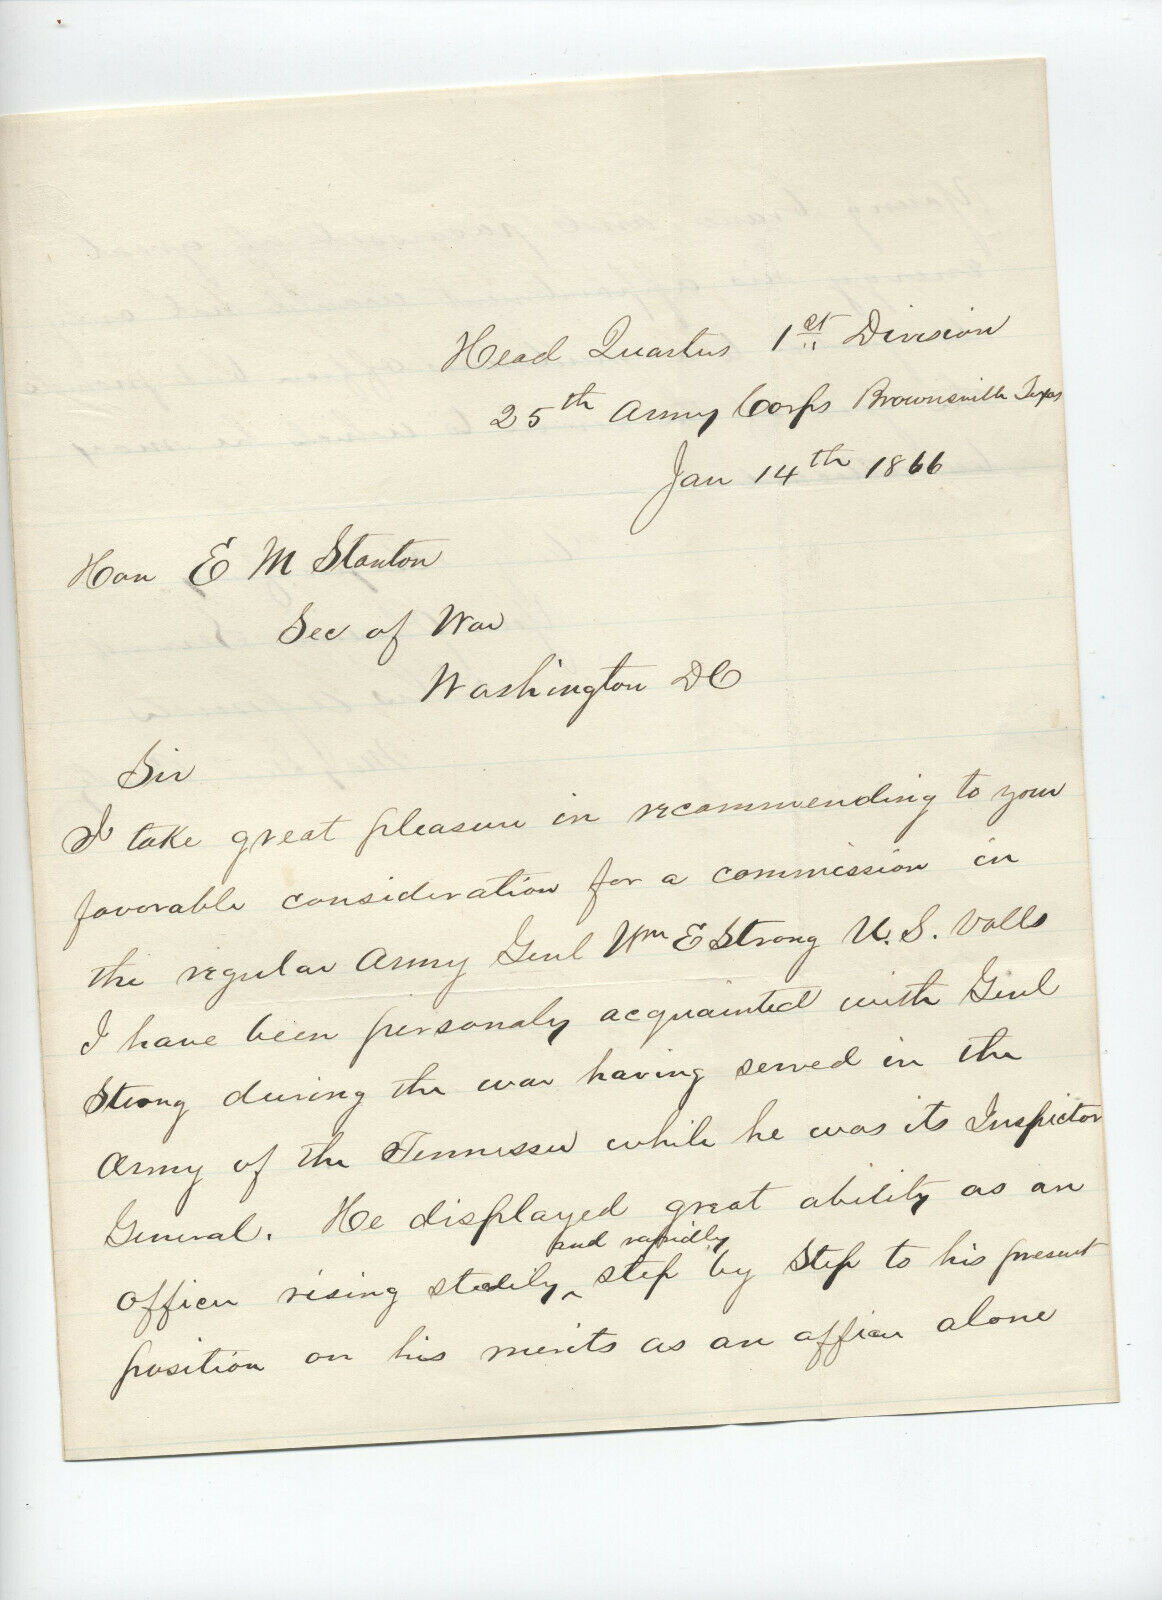 Head Quarters 1st Division
25th Army Corps Brownsville Texas
Jan 14th 1866
Hon E M Stanton
Sec of War
Washington DC
Sir
I take great pleasure in recommending to your
favorable consideration for a commission in
the regular Army Genl Wm E Strong U.S. Volls
I have been personaly acquainted with Genl
Strong during the war having served in the
Army of the Tennessee while he was its Inspector
General. He displayed great ability as an
and rapidly
officer rising stedily ^ step by step to his present
position on his merits as an officer alone